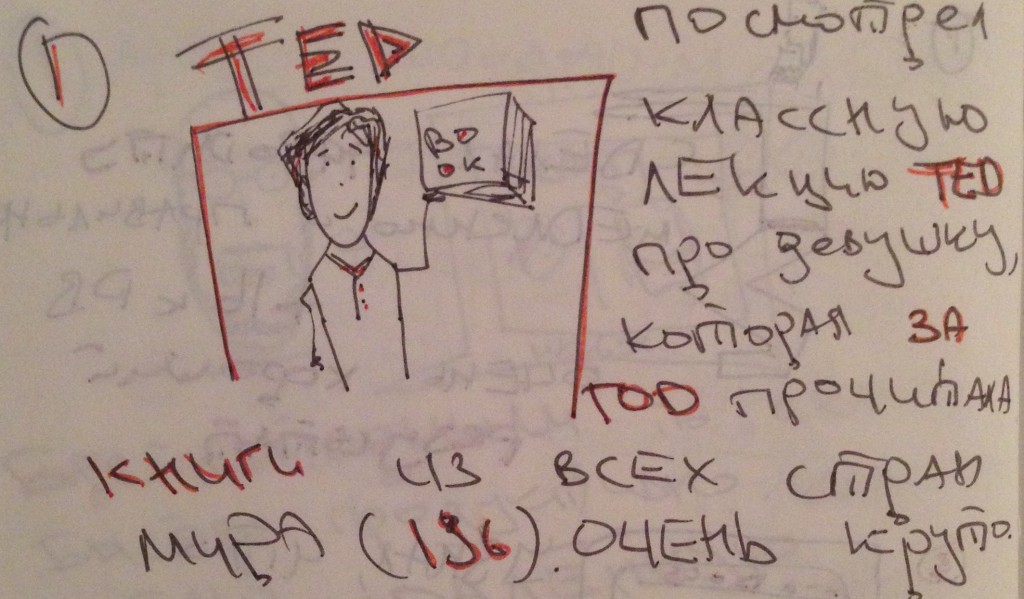 1
TED
BO
OK
посмотрел
классную
лекцию TED
про девушку,
которая за
год прочитала
книги из всех стран
мира (196). очень круто.